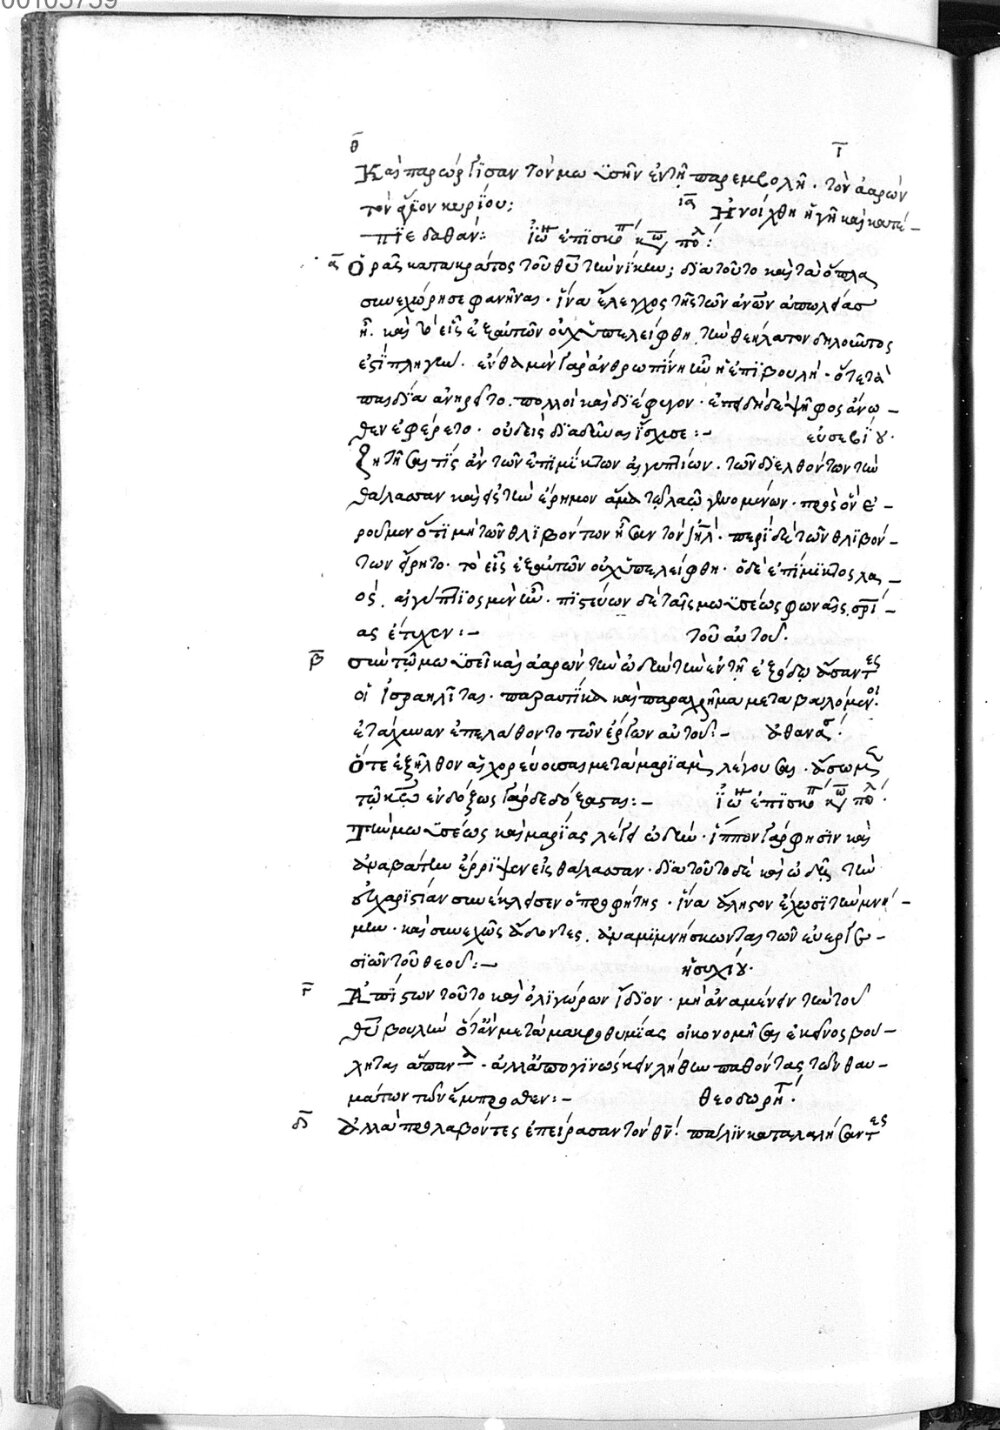 00105759
θ ι
Καὶ παρώργϊσαν τὸν μωϋσῆν ἐν τῆ παρεμβολῆ· τὸν ἀαρὼν
τὸν ἅγϊον κυρϊου; ια Ἠνοίχθη ἡ γῆ καὶ κατέ-
πϊε δαθάν: ἰω ἐπϊσκο κω πο:
α Ὁρᾶς κατακράτος τοῦ θυ τὴν νίκην; δϊα τοῦτο καὶ τὰ ὅπλα
συνεχώρησε φανῆναι· ἵνα ἔλεγχος τῆς τῶν ἀνων ἀπωλείας
ῆ. καὶ τὸ εἷς ἐξ αὐτῶν οὐχ ὑπελείφθη, τὴν θεήλατον δηλοῦντος
ἐςϊ πληγήν· ἔνθα μὲν γὰρ ἀνθρωπίνη ἦν ἡ ἐπϊβουλὴ· ὅτε τὰ
παιδϊα ἀνηρεῖτο. πολλοὶ καὶ δϊέφυγον· ἐπειδὴ δὲ ψῆφος ἄνω-
θεν ἐφέρετο· οὐδεὶς δϊαδεῖναι ἴσχυσε:- εὐσεβΐου.
Ζητῆσαι τϊς ἂν τῶν ἐπϊμίκτων αἰγυπτίων. τῶν δϊελθόντων τὴν
θάλασσαν καὶ εἰς τὴν ἔρημον ἅμα τῷ λαῷ γενομένων· πρὸς ὃν ἐ-
ροῦμεν ὅτϊ μὴ τῶν θλϊβόντων ἦσαν τὸν ιηλ· περὶ δὲ τῶν θλϊβόν-
των εἴρητο· τὸ εἷς ἐξ αὐτῶν οὐχ ὑπελείφθη· ὁ δὲ ἐπίμϊκτος λα-
ός. αἰγύπτϊος μὲν ἦν· πϊςεύων δὲ ταῖς μωϋσέως φωναῖς, σρϊ-
ας ἔτυχεν:- τοῦ αὐτοῦ.
β σὺν τῷ μωϋσεῖ καὶ ἀαρὼν τὴν ὠδὴν τὴν ἐν τῆ ἐξόδῳ ἄσαντες
οἱ ἰσραηλῖται· παραυτίκα καὶ παραχρῆμα μεταβαλόμενοι.
ἐτάχυναν ἐπελάθοντο τῶν ἔργων αὐτοῦ:- ἀθανασ:
Ὅτε ἐξῆλθον αἱ χορεύουσαι μετὰ μαρϊὰμ, λέγουσαι· ἄσωμεν
τῷ κω ἐνδόξως γὰρ δεδόξαςαι:- ἰω ἐπϊσκο κω πο:
Τὴν μωϋσέως καὶ μαρίας λέγει ὠδήν· ἵππον γάρ φησϊν καὶ
ἀναβάτην ἔρρϊψεν εἰς θάλασσαν· δϊα τοῦτο δὲ καὶ ὠδῆς τὴν
εὐχαρϊςίαν συνέκλεισεν ὁ προφήτης· ἵνα ἄληςον ἔχωσϊ τὴν μνή-
μην· καὶ συνεχῶς ἄδοντες, ἀναμϊμνήσκωνται τῶν εὐεργε-
σϊῶν τοῦ θεοῦ:- ἡσυχίου.
γ Ἀπίςων τοῦτο καὶ ὀλϊγώρων ἴδϊον· μὴ ἀναμένειν τὴν τοῦ
θυ βουλὴν ὅτ' ἂν μετὰ μακροθυμίας οἰκονομῆσαι ἐκεῖνος βού-
ληται ἅπαντα· ἀλλ' ἀπογϊνώσκειν λήθην παθόντας τῶν θαυ-
μάτων τῶν ἔμπροσθεν:- θεοδωρητ·
δ Ἀλλὰ προλαβόντες ἐπείρασαν τὸν θν· πάλϊν καταλαλήσαντες